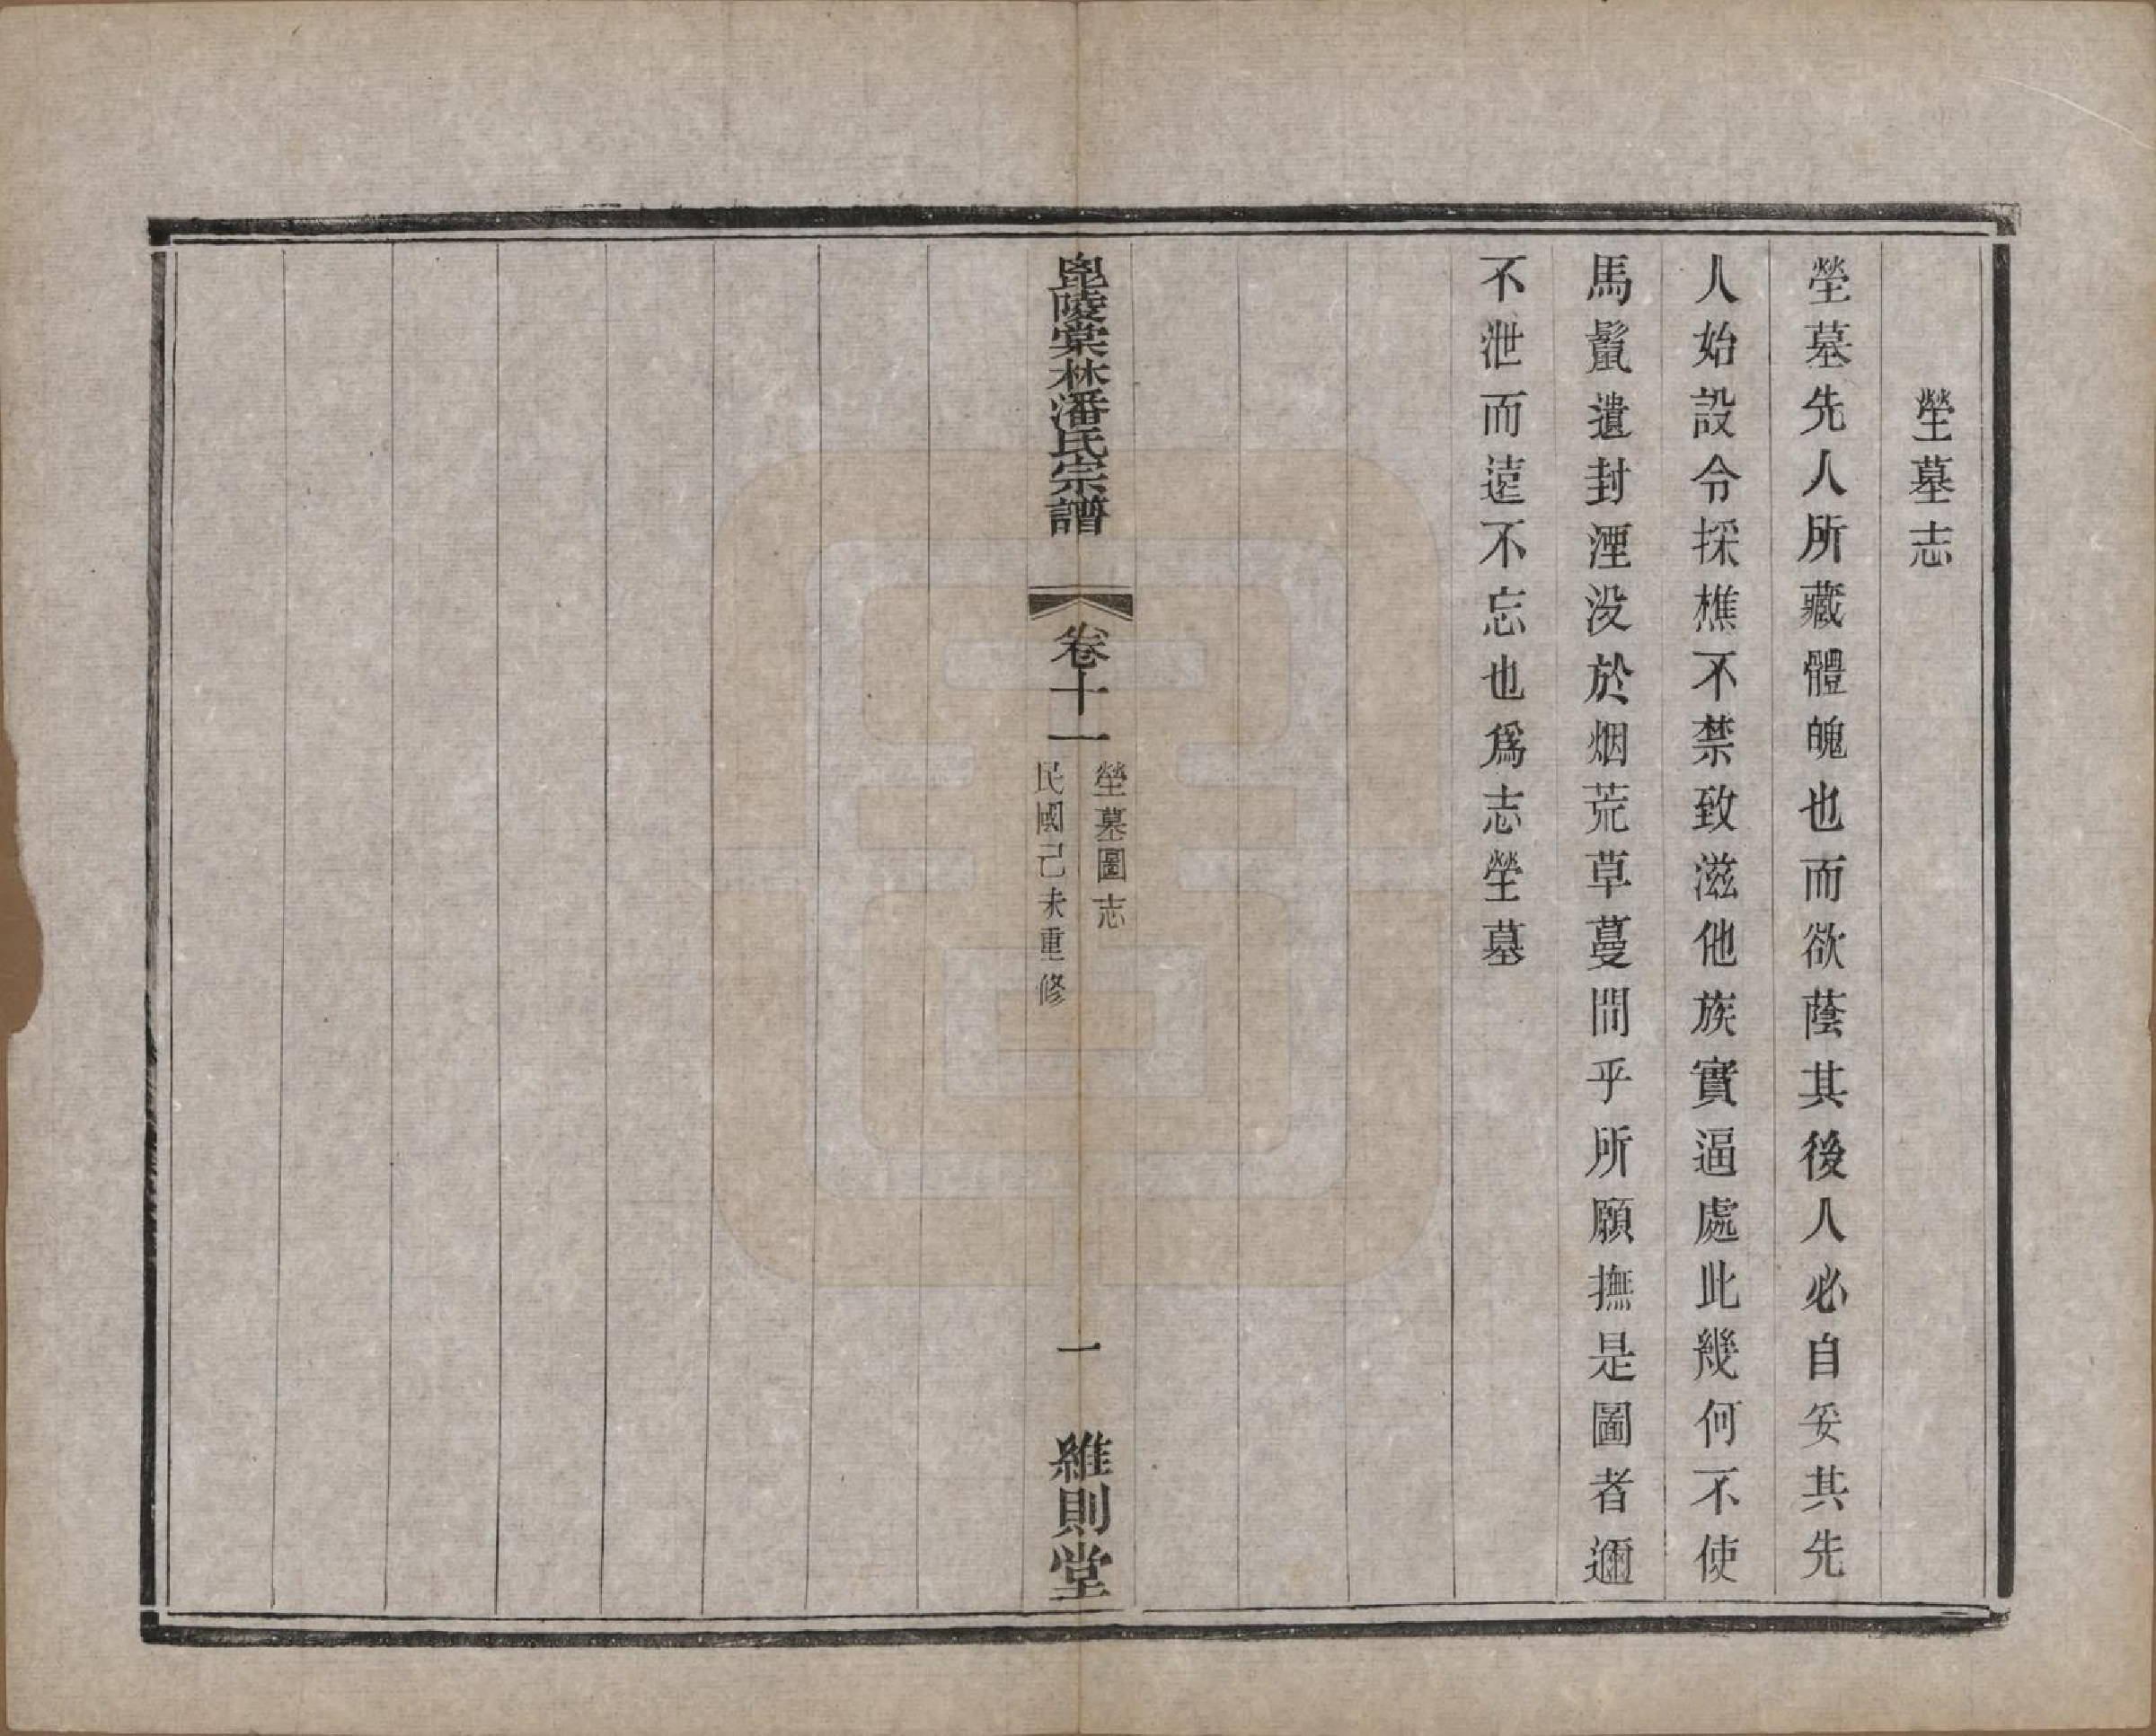 塋墓志
塋墓先人所藏體魄也而欲蔭其後人必自妥其先
人始設令採樵不禁致滋他族實逼處此幾何不使
馬鬣遺封湮没於烟荒草蔓間乎所願撫是圖者邇
不泄而逺不忘也爲志塋墓
毘陵棠林潘氏宗譜
卷十一
塋墓圖志
民國己未重修
一
維則堂